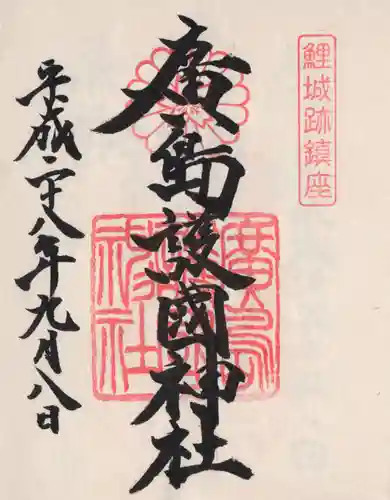 鯉城跡鎮座
廣島護國神社
廣島護國神社
平成二十八年九月八日